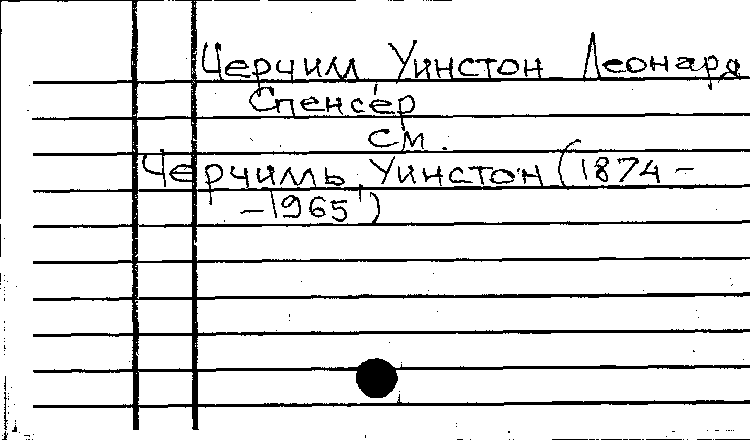 Черчилл Уинстон Леонард
Спенсер
см.
Черчилль, Уинстон (1874 -
- 1965)